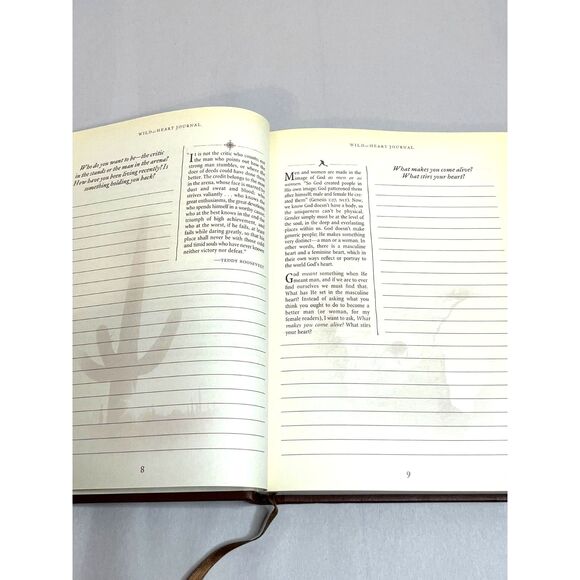 WILD at HEART JOURNAL
Who do you want to be—the critic
in the stands or the man in the arena?
How have you been living recently? Is
something holding you back?
It is not the critic who counts, not
the man who points out how the
strong man stumbles, or where the
doer of deeds could have done them
better. The credit belongs to the man
in the arena, whose face is marred by
dust and sweat and blood, who
strives valiantly . . . who knows the
great enthusiasms, the great devotions,
who spends himself in a worthy cause;
who at the best knows in the end the
triumph of high achievement, and
who at the worst, if he fails, at least
fails while daring greatly, so that his
place shall never be with those cold
and timid souls who have never known
neither victory nor defeat."
—TEDDY ROOSEVELT
8
WILD at HEART JOURNAL
Men and women are made in the
image of God as men or as
women. "So God created people in
his own image; God patterned them
after himself; male and female He cre-
ated them" (Genesis 1:27, NLT). Now,
we know God doesn't have a body, so
the uniqueness can't be physical.
Gender simply must be at the level of
the soul, in the deep and everlasting
places within us. God doesn't make
generic people; He makes something
very distinct—a man or a woman. In
other words, there is a masculine
heart and a feminine heart, which in
their own ways reflect or portray to
the world God's heart.
God meant something when He
meant man, and if we are to ever
find ourselves we must find that.
What has He set in the masculine
heart? Instead of asking what you
think you ought to do to become a
better man (or woman, for my
female readers), I want to ask, What
makes you come alive? What stirs
your heart?
What makes you come alive?
What stirs your heart?
9